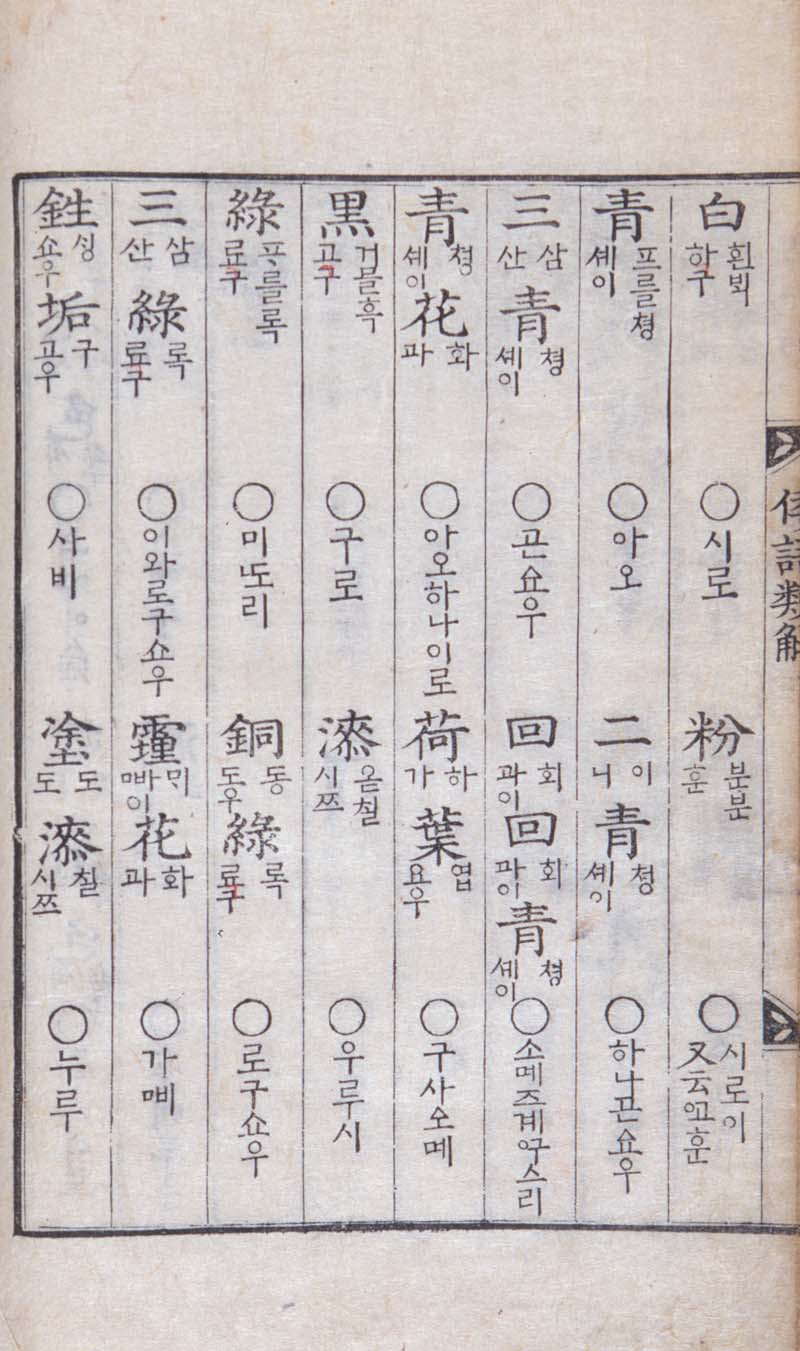 倭語類解
白 흰ᄇᆡᆨ 하구 ○시로 粉 분분 훈 ○시로이 又云
青 프를쳥 셰이 ○아오 二 이 니 青 쳥 셰이 ○하나곤쇼우
三 삼 산 青 쳥 셰이 ○곤쇼우 回 회 과이 回 회 과이 青 쳥 셰이 ○소메즈계구스리
青 쳥 셰이 花 화 과 ○아오하나이로 荷 하 가 葉 엽 요우 ○구사소메
黑 거믈흑 고구 ○구로 漆 옫칠 시쯔 ○우루시
綠 프를록 료구 ○미ᄯᅩ리 銅 동 도우 綠 록 료구 ○로구쇼우
三 삼 산 綠 록 료구 ○이와로구쇼우 霾 ᄆᆡ 빠이 花 화 과 ○가삐
鉎 싱 쇼우 垢 구 고우 ○사비 塗 도 도 漆 칠 시쯔 ○누루